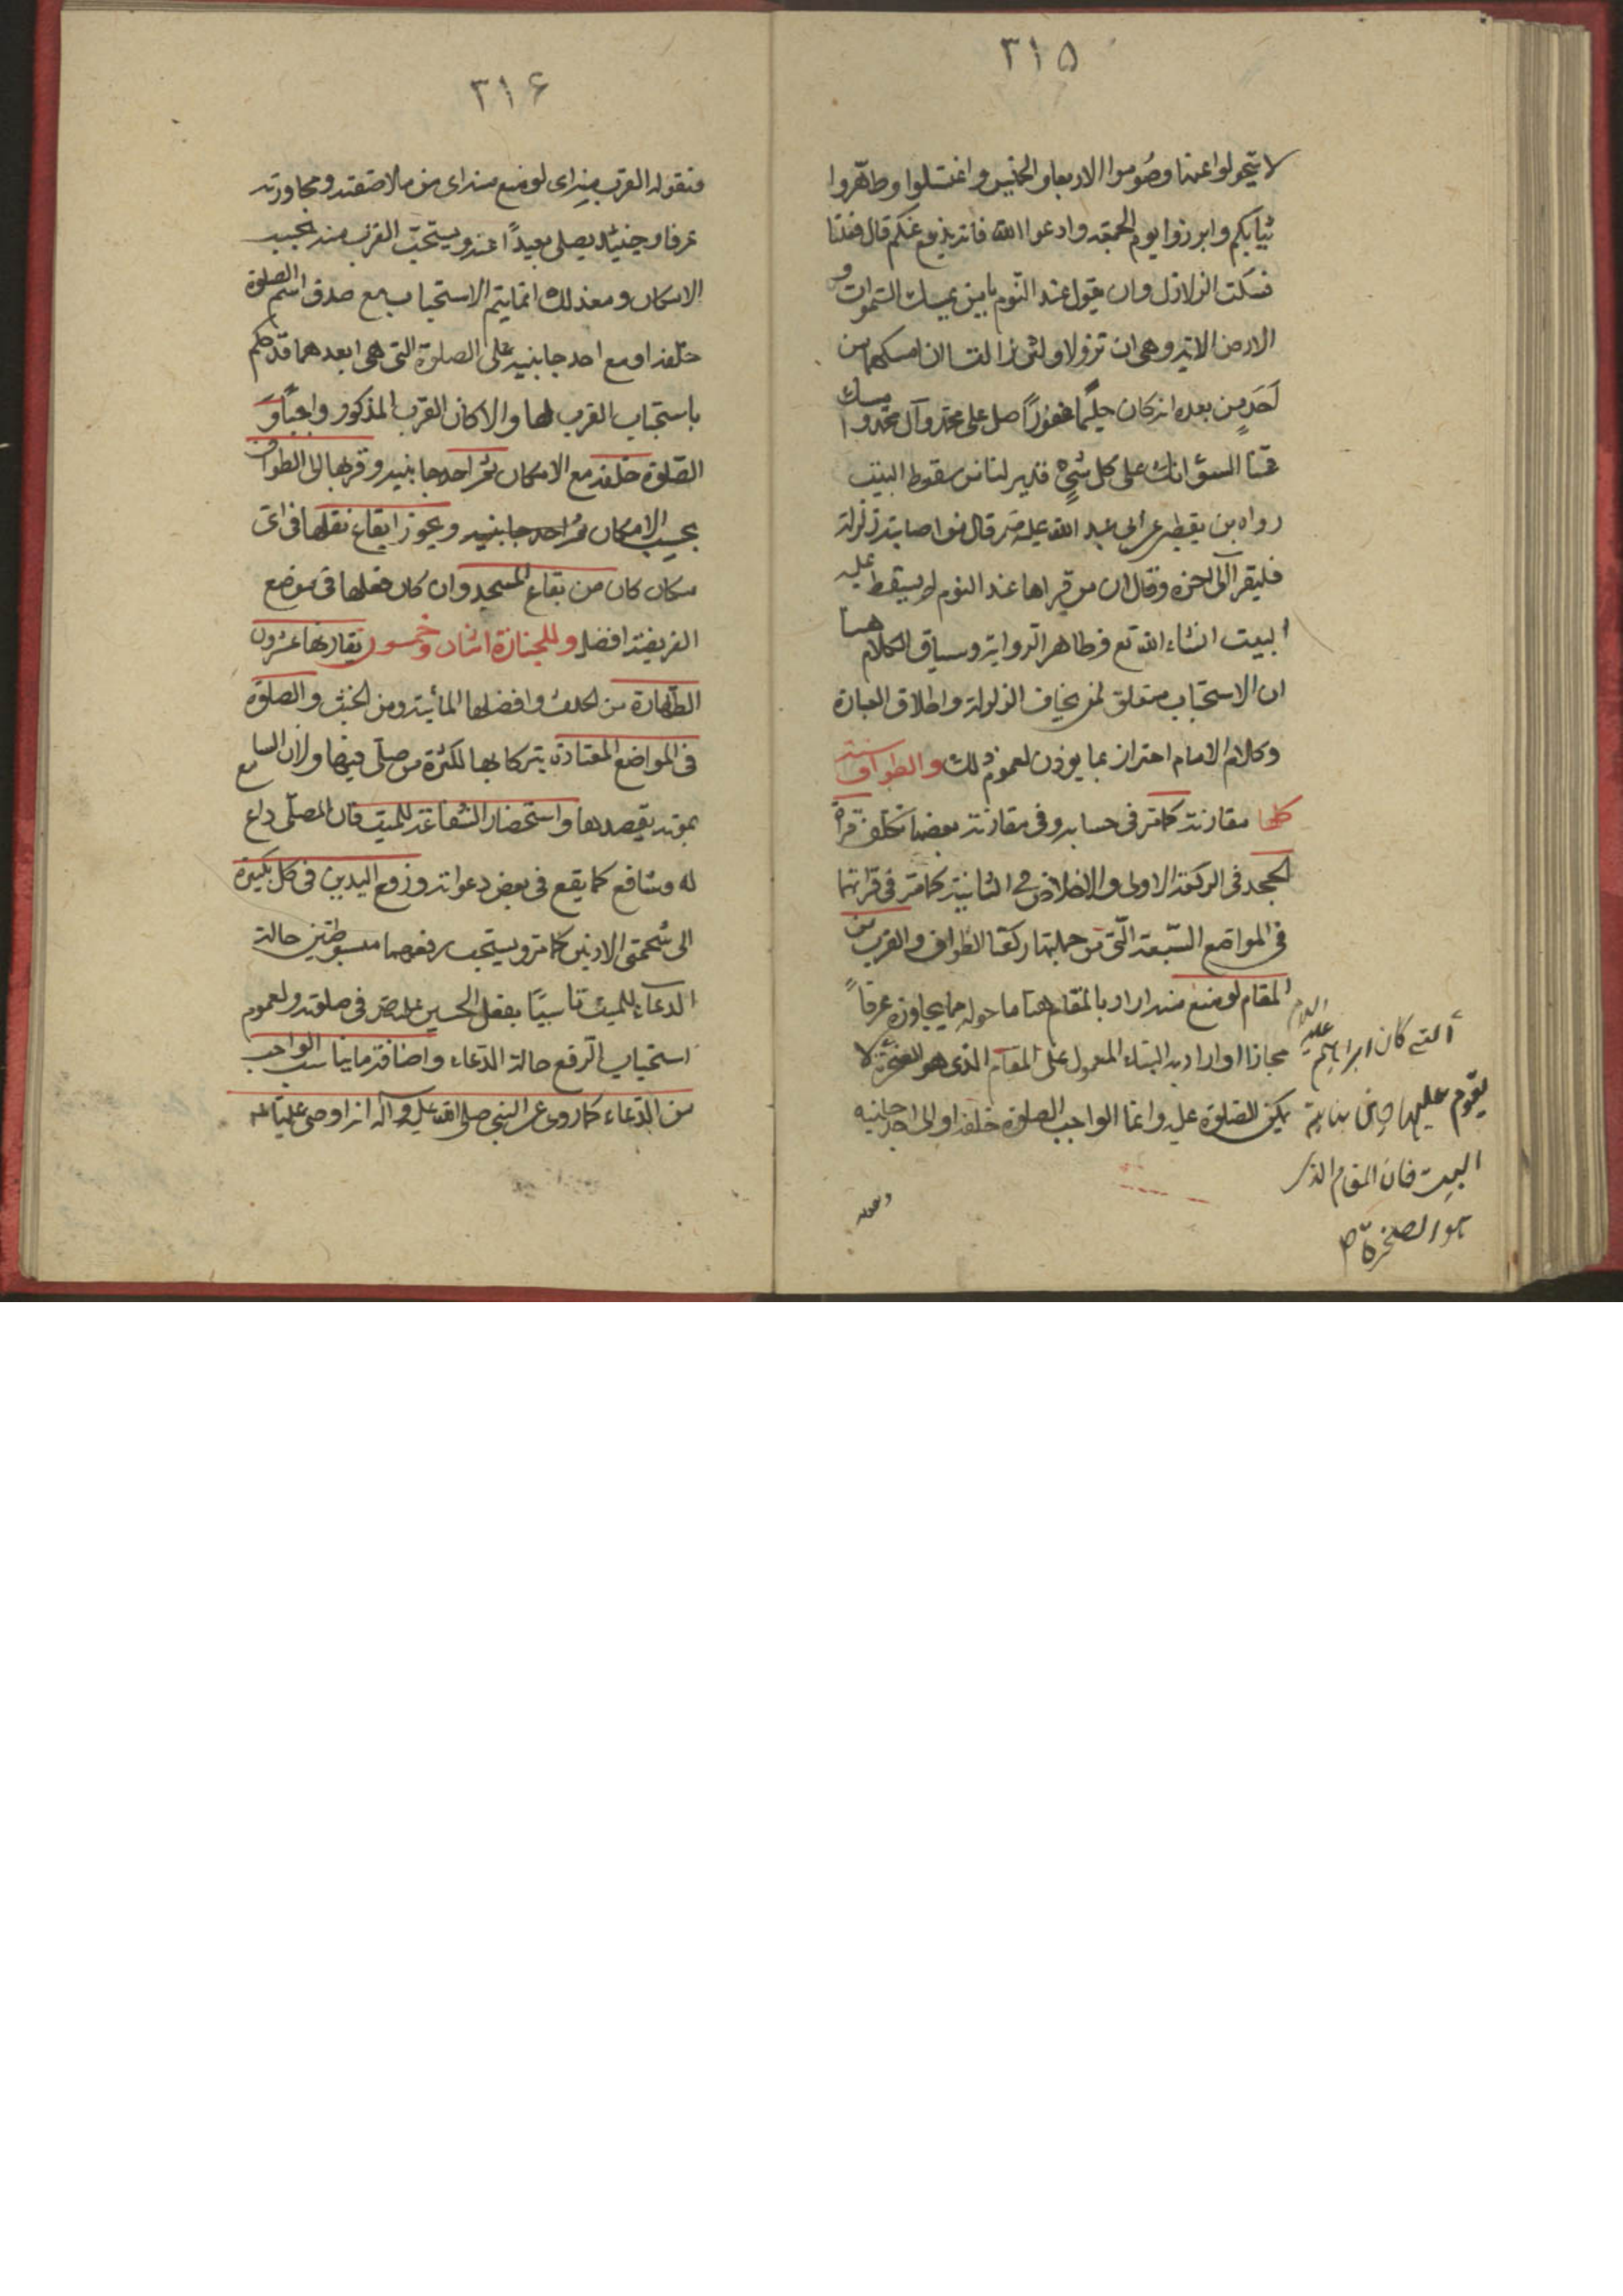 ٣١٥
لا يتحولوا عنها وصوموا الاربعا والخميس واغتسلوا وطهروا
ثيابكم وابرزوا يوم الجمعة وادعوا الله فانه يرفع عنكم قال ففعلنا
فسكنت الزلازل وان يقول عند النوم يا من يمسك السموات و
الارض الاية وهى ان تزولا ولئن زالتا ان امسكهما من
احد من بعده انه كان حليما غفورا صل على محمد وآل محمد وامسك
عنا السوء انك على كل شئ قدير لئامن سقوط البيت
رواه بن يقطين عن ابى عبد الله عليه قال من اصابته زلزلة
فليقرا الى اخره وقال ان من قراها عند النوم لم يسقط عليه
البيت انشاء الله تع فظاهر الرواية وسياق الكلام هنا
ان الاستحباب متعلق لمن يخاف الزلزلة واطلاق العبارة
وكلام الامام احتراز بما يوذن لعموم ذلك والطواف ستة
كلها مقارنة كما مر فى حسابه وفى مقارنة بعضها تكلف قراة
الجحد فى الركعة الاولى والاخلاص فى الثانية كما مر فى قرائتهما
فى المواضع السبعة التى من جملتها ركعتا الطواف والقرب من
المقام لو منع منه اراد بالمقام هنا ما حوله مما يجاوزه عرفاً
مجازا او اراد به البناء المعمول على المقام الذى هو الصخرة لا
يمكن الصلوة عليه وانما الواجب الصلوة خلفه او الى احد جانبيه
التى كان ابراهيم عليه السلام
يقوم عليها حين بناية
البيت فان المقام الذى
هو الصخرة
٣١۶
فقوله القرب منه اى لو منع منه اى من ملاصقته ومجاورته
عرفا وحينئذ يصلى بعيدًا عنه ويستحب القرب منه بحسب
الامكان ومع ذلك انما يتم الاستحباب مع صدق اسم الصلوة
خلفه او مع احد جانبيه على الصلوة التى هى ابعدهما قد حكم
باستحباب القرب لها والا كان القرب المذكور واجبًا و
الصلوة خلفه مع الامكان ثم احد جانبيه وقربها الى الطواف
بحسب الامكان ثم احد جانبيه ويجوز ايقاع نفلها فى اى
مكان كان من بقاع المسجد وان كان فعلها فى موضع
الفريضة افضل وللجنازة اثنان وخمسون يقارنها عشرون
الطهارة من الحدث وافضلها المائية ومن الخبث والصلوة
فى المواضع المعتادة يتبركا بها لكثرة من صلى فيها ولان السامع
بموته يقصدها واستحضار الشفاعة للميت فان المصلى داع
له وشافع كما يقع فى بعض دعواته ورفع اليدين فى كل تكبيرة
الى شحمتى الاذنين كما مر ويستحب رفعهما مبسوطتين حالة
الدعاء للميت تاسيًا بفعل الحسين فى صلوته ولعموم
استحباب الرفع حالة الدعاء واضافة ما يناسب الواجب
من الدعاء كما روى عن النبى صلى الله عليه وآله انه اوصى عليًا